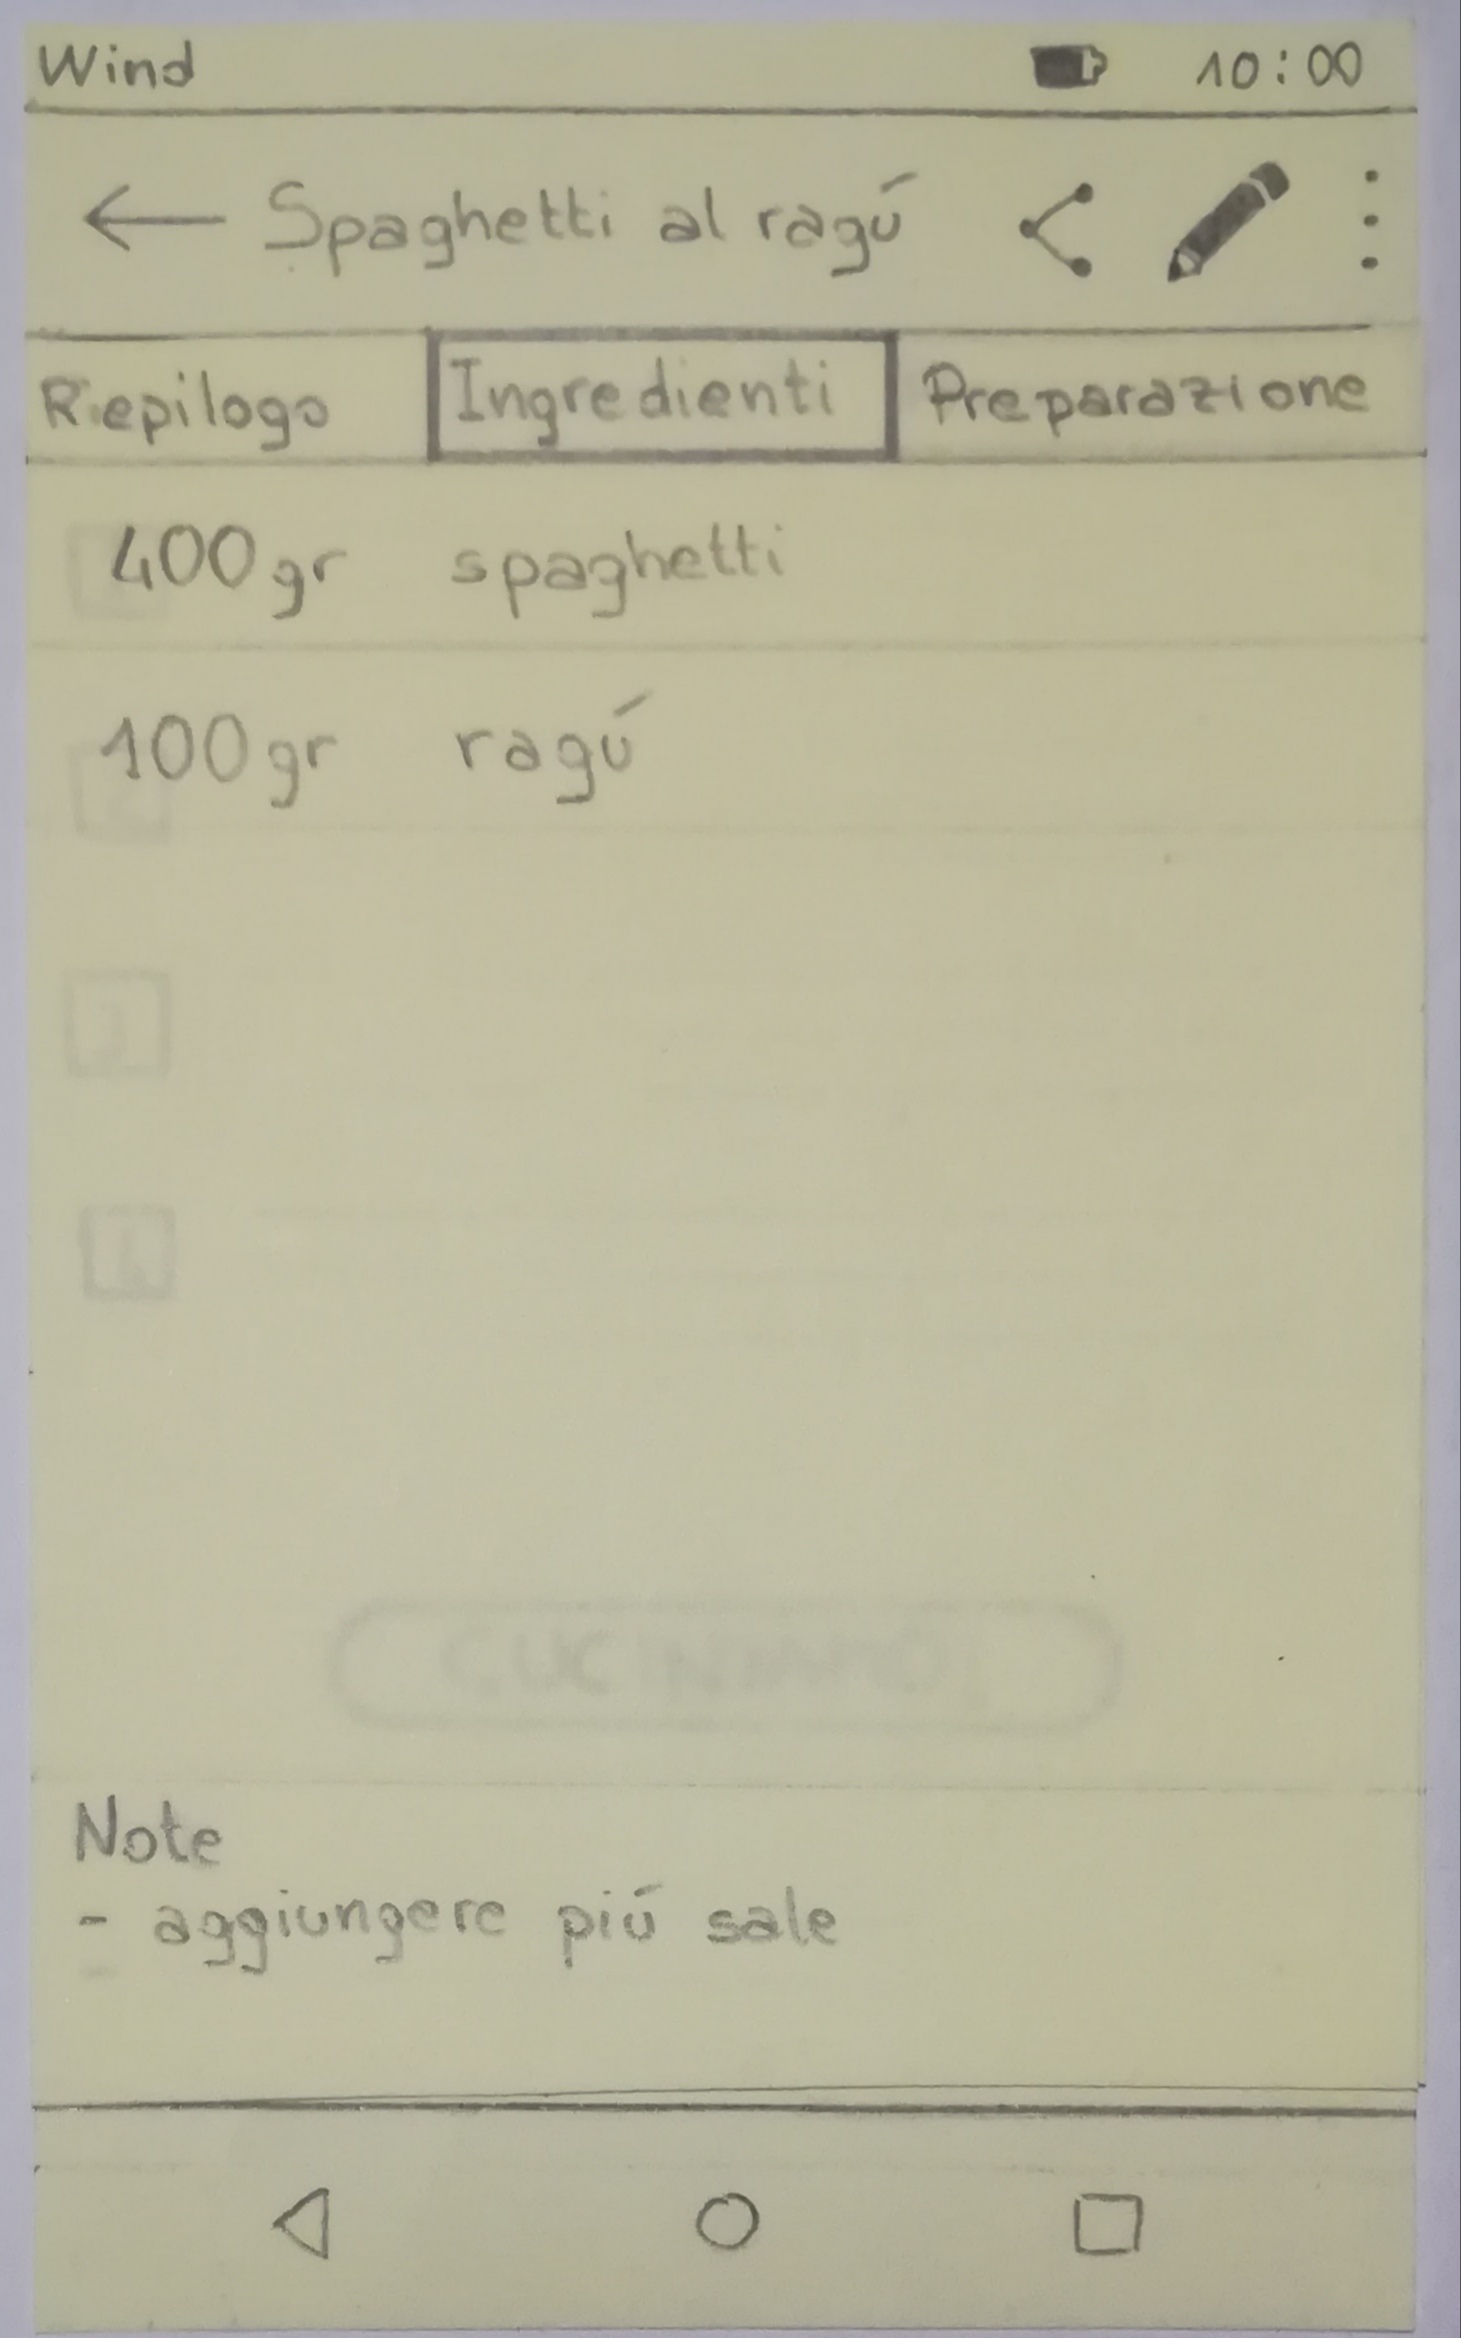 Wind 10:00
Spaghetti al ragú
Riepilogo Ingredienti Preparazione
400gr spaghetti
100gr ragú
Note
- aggiungere piú sale